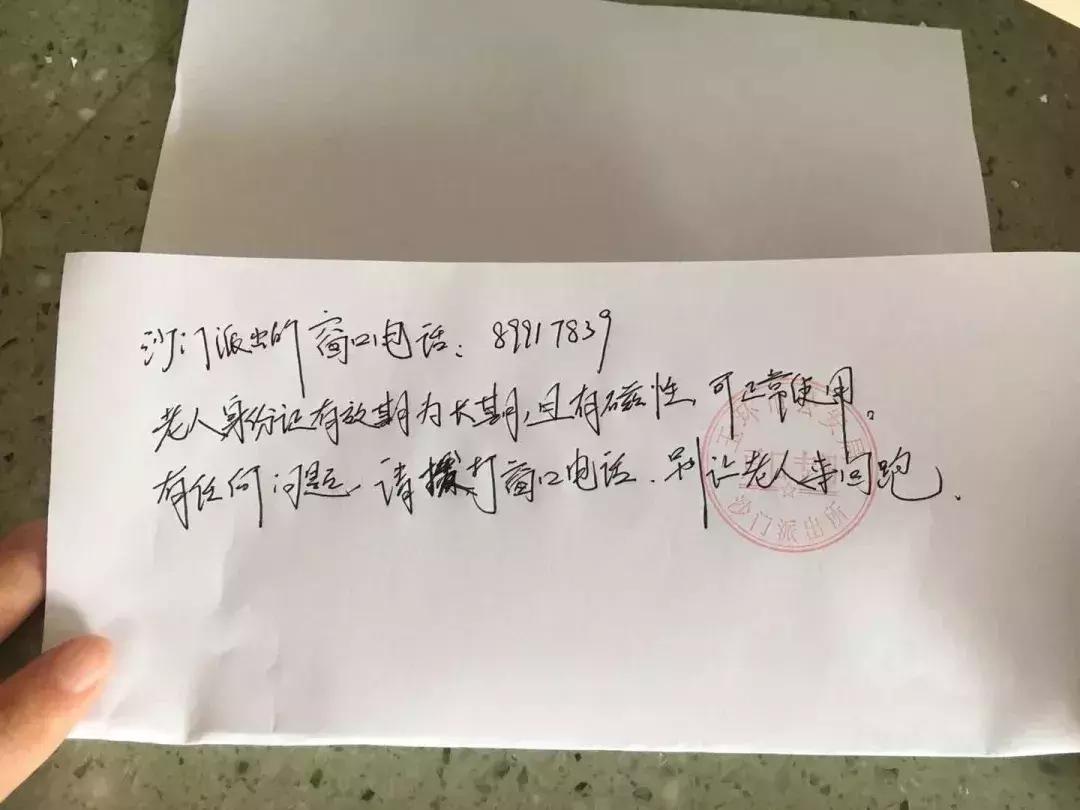 沙门派出所窗口电话：89917839
老人身份证有效期为长期，且有磁性，可正常使用。
有任何问题，请拨打窗口电话．别让老人来回跑．
沙门派出所